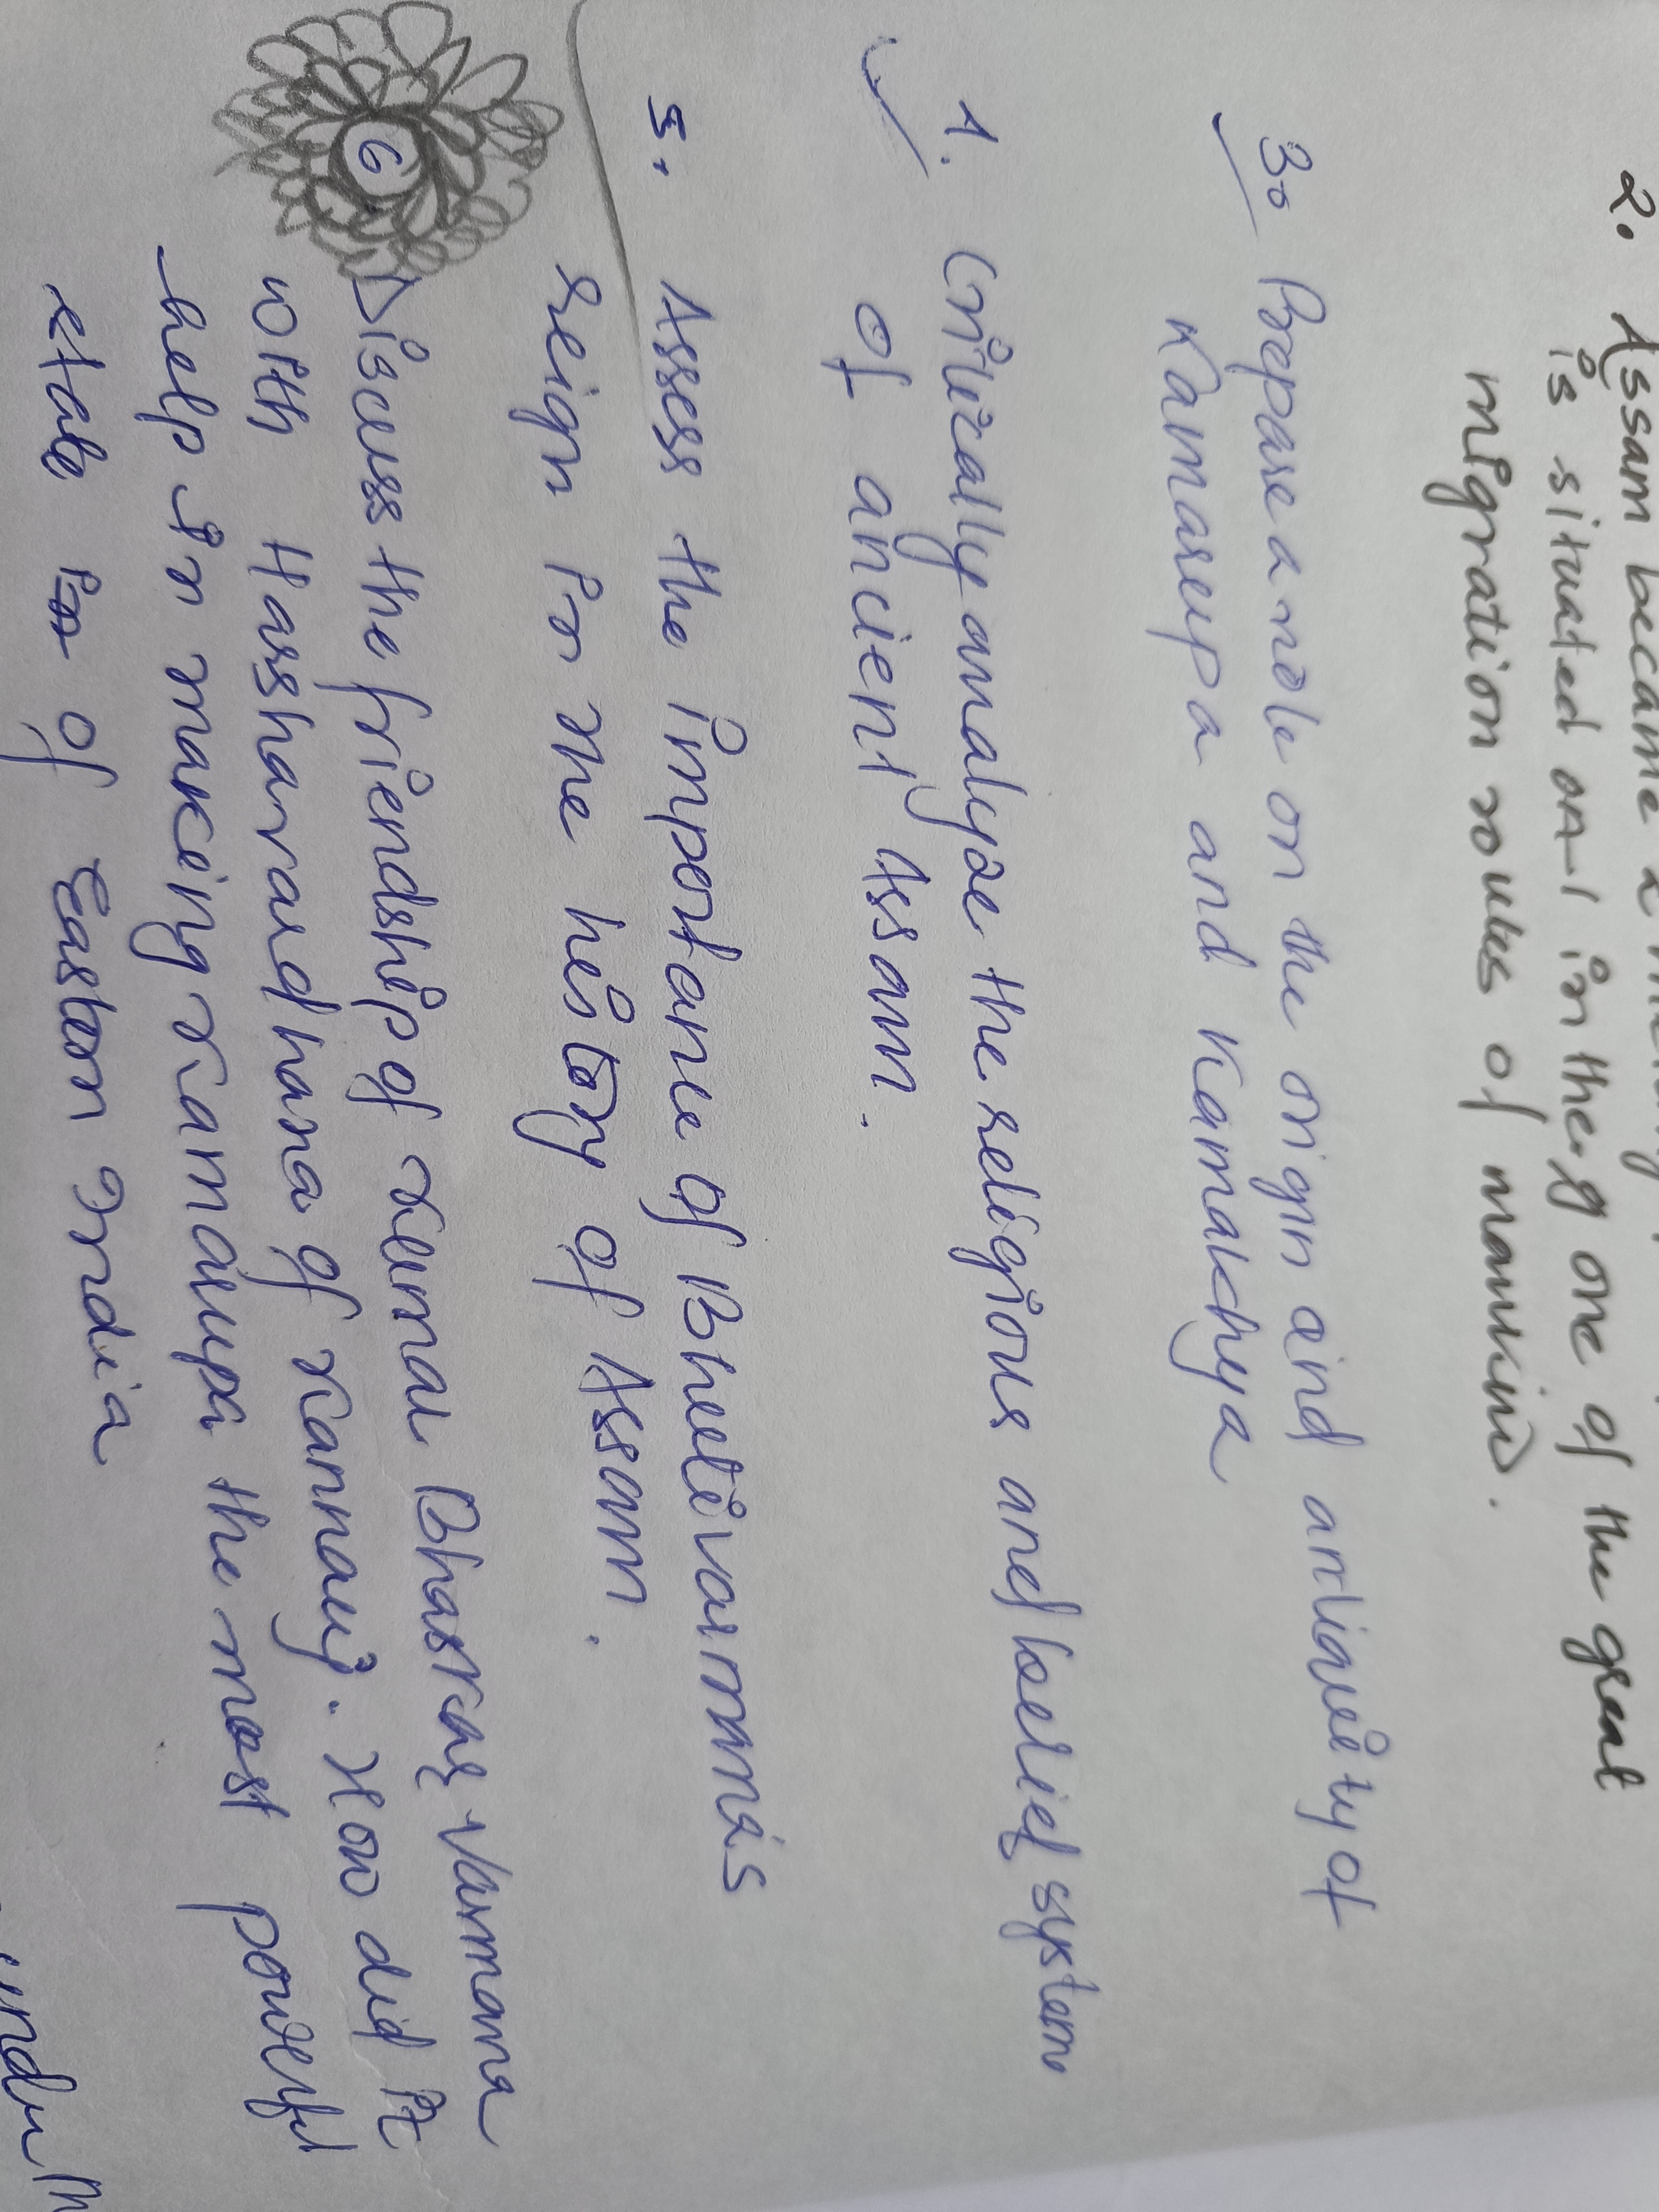 2. Assam became a
is situated on in the one of the great
migration routes of mankind.
3. Prepare a note on the origin and antiquity of
Kamarupa and Kamakhya
1. Critically analyze the religious and belief system
of ancient Assam.
5. Assess the importance of Bhutivarmma's
reign in the history of Assam.
6 Discuss the friendship of Kumar Bhaskar Varmana
with Harshavardhana of Kannauj. How did it
help in making Kamarupa the most powerful
state in of Eastern India